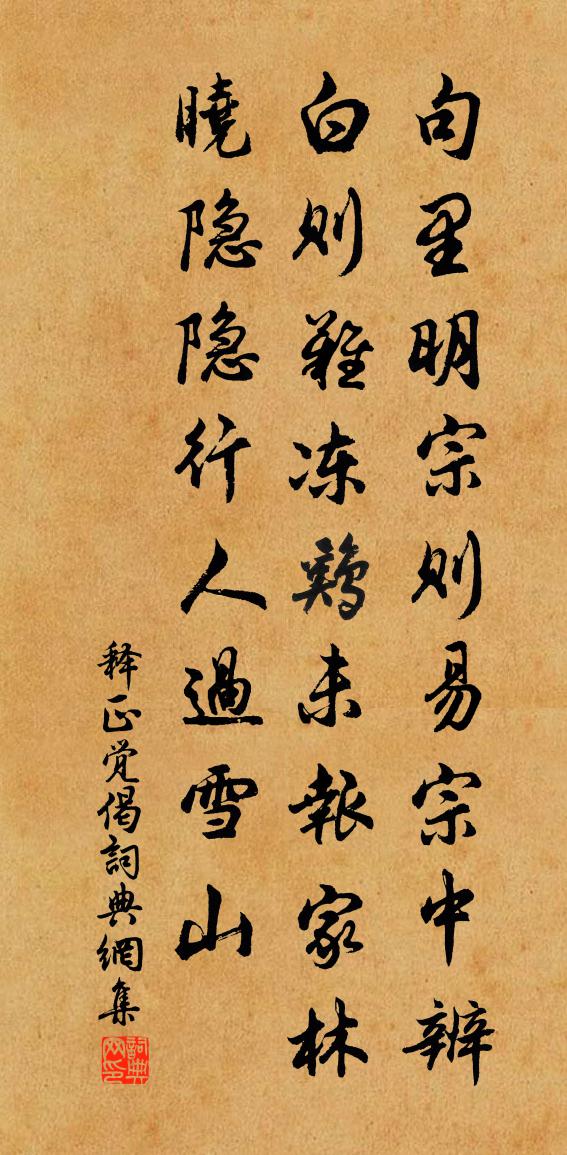 句里明宗则易宗中辨
白则难冻鸡未报家林
晓隐隐行人过雪山
释正觉偈詞典網集
詞典网印